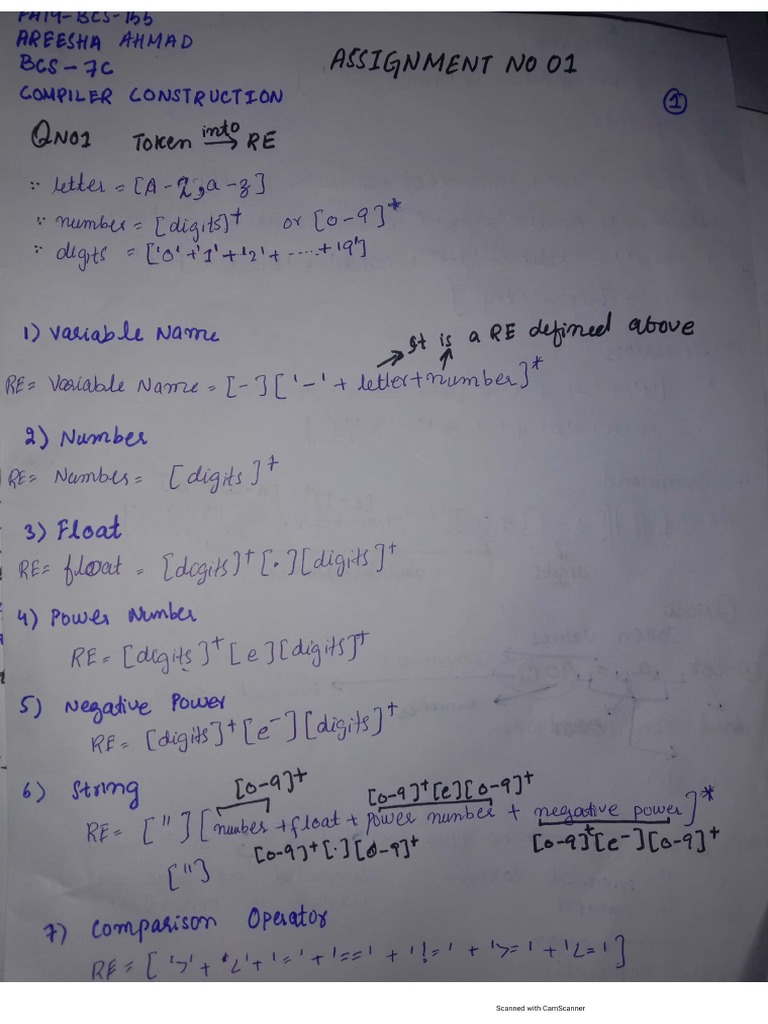 FA19-BCS-155
AREESHA AHMAD
BCS-7C
ASSIGNMENT NO 01
COMPILER CONSTRUCTION
①
QNO1 Token into → RE
∵ letter = [A-Z,a-z]
∵ number = [digits]⁺ or [0-9]*
∵ digits = ['0'+'1'+'2'+.....+'9']
1) Variable Name
It is a RE defined above
RE= Variable Name = [-]['-' + letter+number]*
2) Number
RE= Number = [digits]⁺
3) Float
RE= float = [digits]⁺[.][digits]⁺
4) Power Number
RE=[digits]⁺[e][digits]⁺
5) Negative Power
RE= [digits]⁺[e⁻][digits]⁺
6) String
[0-9]⁺ [0-9]⁺[e][0-9]⁺
RE= ["][number+float+power number + negative power]*
[0-9]⁺[.][0-9]⁺ [0-9]⁺[e⁻][0-9]⁺
["]
7) Comparison Operator
RE=['>'+'<'+'='+'=='+'!='+'>='+'<=']
Scanned with CamScanner